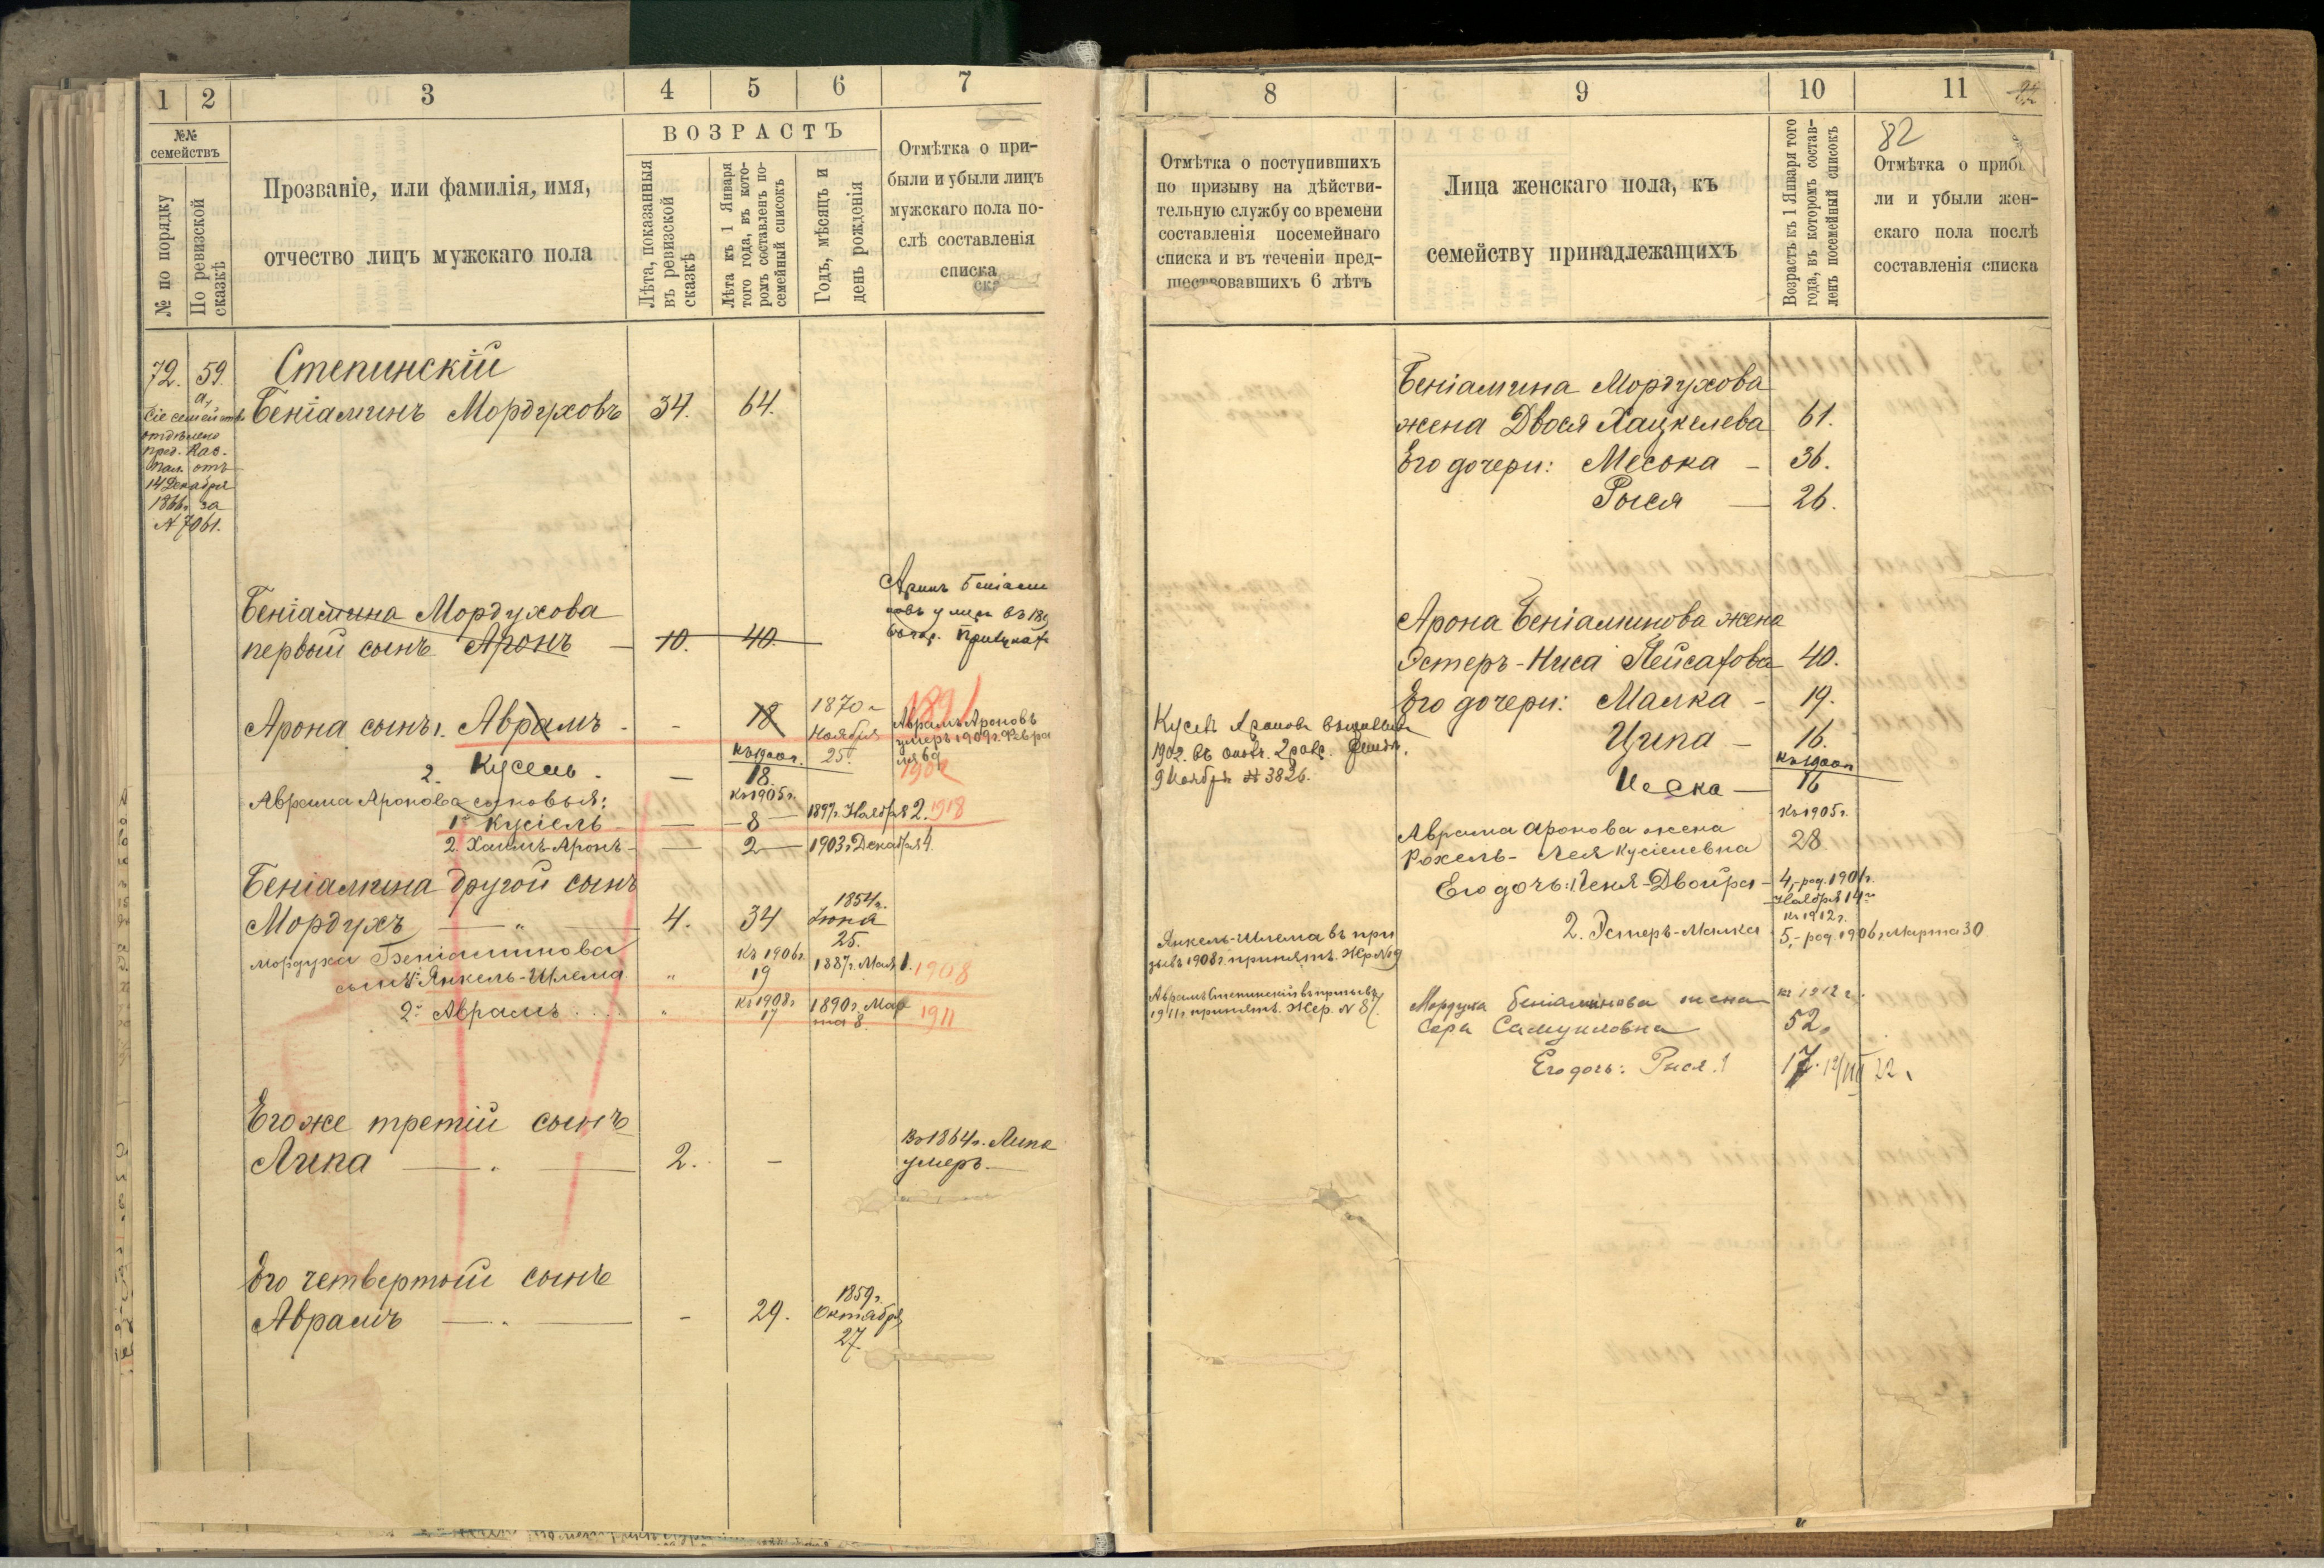 1 2 3 4 5 6 7
№№ семействъ
№ по порядку
По ревизской сказкѣ
Прозваніе, или фамилія, имя,
отчество лицъ мужскаго пола
ВОЗРАСТЪ
Лѣта, показанныя
въ ревизской
сказкѣ
Лѣта къ 1 Января
того года, въ кото-
ромъ составленъ по-
семейный списокъ
Годъ, мѣсяцъ и
день рожденія
Отмѣтка о при-
были и убыли лицъ
мужскаго пола по-
слѣ составленія
списка
72. 59. Степинскій
а,
Беніаминъ Мордуховъ 34. 64.
Сіе семейство
отдѣлено
пред. Каз.
Пал. отъ
14 Декабря
1866 г. за
№ 7061.
Беніамина Мордухова
первый сынъ Аронъ — 10. 40.
Аронъ Беніами
новъ умеръ въ 189
Арона сынъ 1. Аврамъ - - 18 1870 г
Ноября
25.
1891
Аврамъ Ароновъ
умеръ 1909 г. Февра
ля 6 д
къ 1900 г.
2. Кусель. — 18. 1902
Аврама Аронова сыновья: Къ 1905 г.
1й Кусіель — 8 — 1897 г. Ноября 2. 1918
2 Хаимъ-Аронъ - — 2 — 1903 г Декабря 4.
Беніамина другой сынъ
Мордухъ — " — 4. 34 1854 г.
Іюня
25.
Мордуха Беніаминова Къ 1906 г.
сынъ 1й Янкель-Шлема " 19 1887 г. Мая 1. 1908
2й Аврамъ . . . " Къ 1908 г 17 1890 г. Мар
та 8 1911
Его же третій сынъ
Липа — . — 2. - Въ 1864 г. Липа
умеръ. —
Его четвертый сынъ
Аврамъ — . — - 29. 1859 г.
Октября
27.
8 9 10 11
82
Отмѣтка о поступившихъ
по призыву на дѣйстви-
тельную службу со времени
составленія посемейнаго
списка и въ теченіи пред-
шествовавшихъ 6 лѣтъ
Лица женскаго пола, къ
семейству принадлежащихъ
Возрастъ къ 1 Января того
года, въ которомъ состав-
ленъ посемейный списокъ
Отмѣтка о прибы
ли и убыли жен-
скаго пола послѣ
составленія списка
Беніамина Мордухова
жена Двося Хацкелева 61.
Его дочери: Месока - 36.
Рыся — 26.
Арона Беніаминова жена
Эстеръ-Ниса Пейсахова 40.
Его дочери: Малка - 19.
Ципа - 16.
къ 1900 г
Иеска — 16
Кусель Ароновъ
1902. въ
9 Ноября № 3826.
Къ 1905 г.
Аврама Аронова жена
Рохель-Лея Кусіелевна 28
Его дочь: 1. Геня-Двойра - 4, род. 1901 г.
Ноября 14 го
Къ 1912 г.
2. Эстеръ-Малка 5, - род. 1906 г Марта 30
Янкель-Шлема въ при
зывъ 1908 г. принятъ. Жр № 9
Аврамъ Степинскій въ призывъ
1911 г принятъ. Жер. № 87.
Мордуха Беніаминова жена къ 1912 г.
Сора Самуиловна 52.
Его дочь: Рыся. 1 17. 12/III 22.